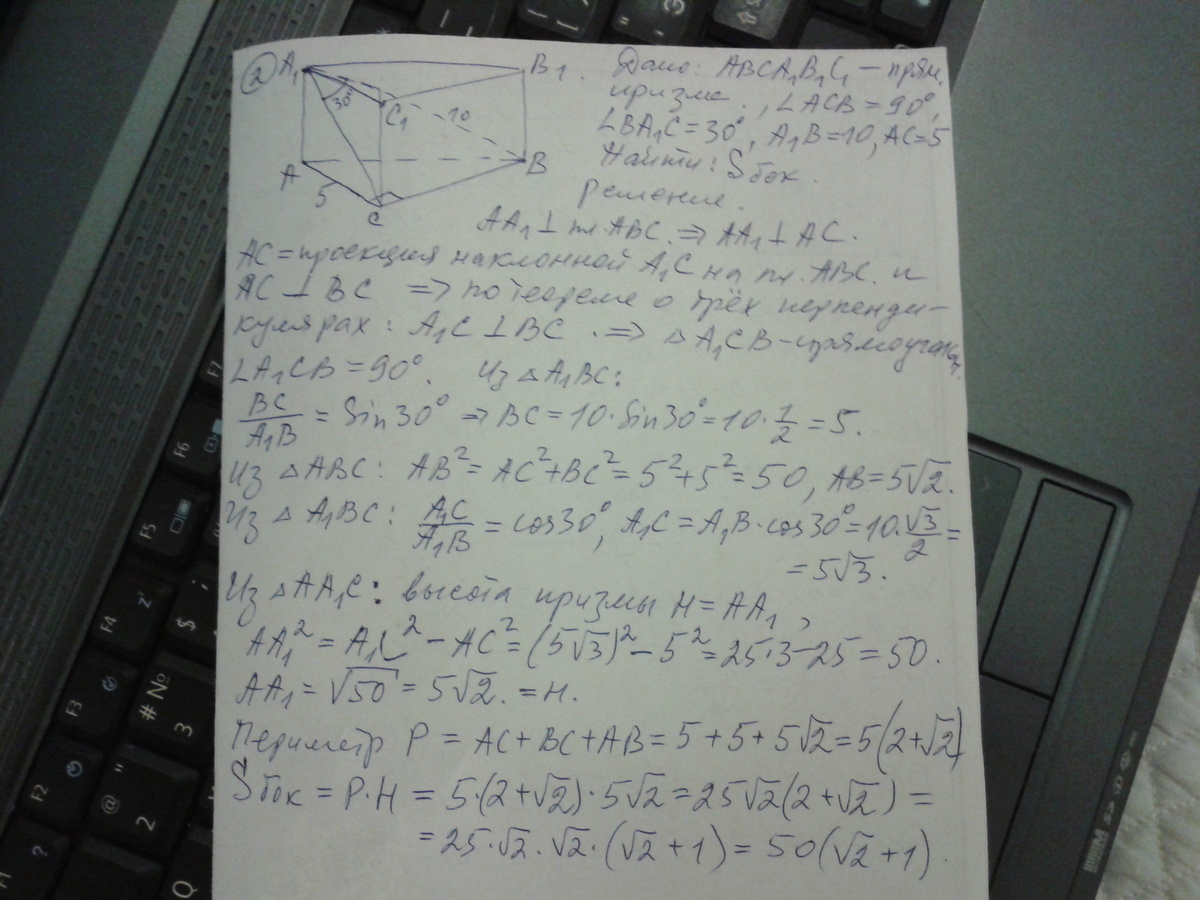 2
A₁
B₁.
30°
C₁
10
A
B
5
C
Дано: ABCA₁B₁C₁ – прям.
призма., ∠ACB = 90°,
∠BA₁C = 30°, A₁B = 10, AC = 5
Найти: Sбок.
Решение.
AA₁ ⊥ пл. ABC. ⇒ AA₁ ⊥ AC.
AC = проекция наклонной A₁C на пл. ABC. и
AC ⊥ BC ⇒ по теореме о трёх перпенди-
кулярах: A₁C ⊥ BC. ⇒ △A₁CB – прямоугольн.
∠A₁CB = 90°. Из △A₁BC:
BC/A₁B = Sin30° ⇒ BC = 10·Sin30° = 10·1/2 = 5.
Из △ABC: AB² = AC² + BC² = 5² + 5² = 50, AB = 5√2.
Из △A₁BC: A₁C/A₁B = cos30°, A₁C = A₁B·cos30° = 10·√3/2 =
= 5√3.
Из △AA₁C: высота призмы H = AA₁,
AA₁² = A₁C² – AC² = (5√3)² – 5² = 25·3 – 25 = 50.
AA₁ = √50 = 5√2. = H.
Периметр P = AC + BC + AB = 5 + 5 + 5√2 = 5(2+√2)
Sбок = P·H = 5·(2+√2)·5√2 = 25√2(2+√2) =
= 25·√2·√2·(√2+1) = 50(√2+1).
F7
F6
F5
F4
F3
F2
F1
$
;
4
# №
3
@
"
2
?
Q
MS